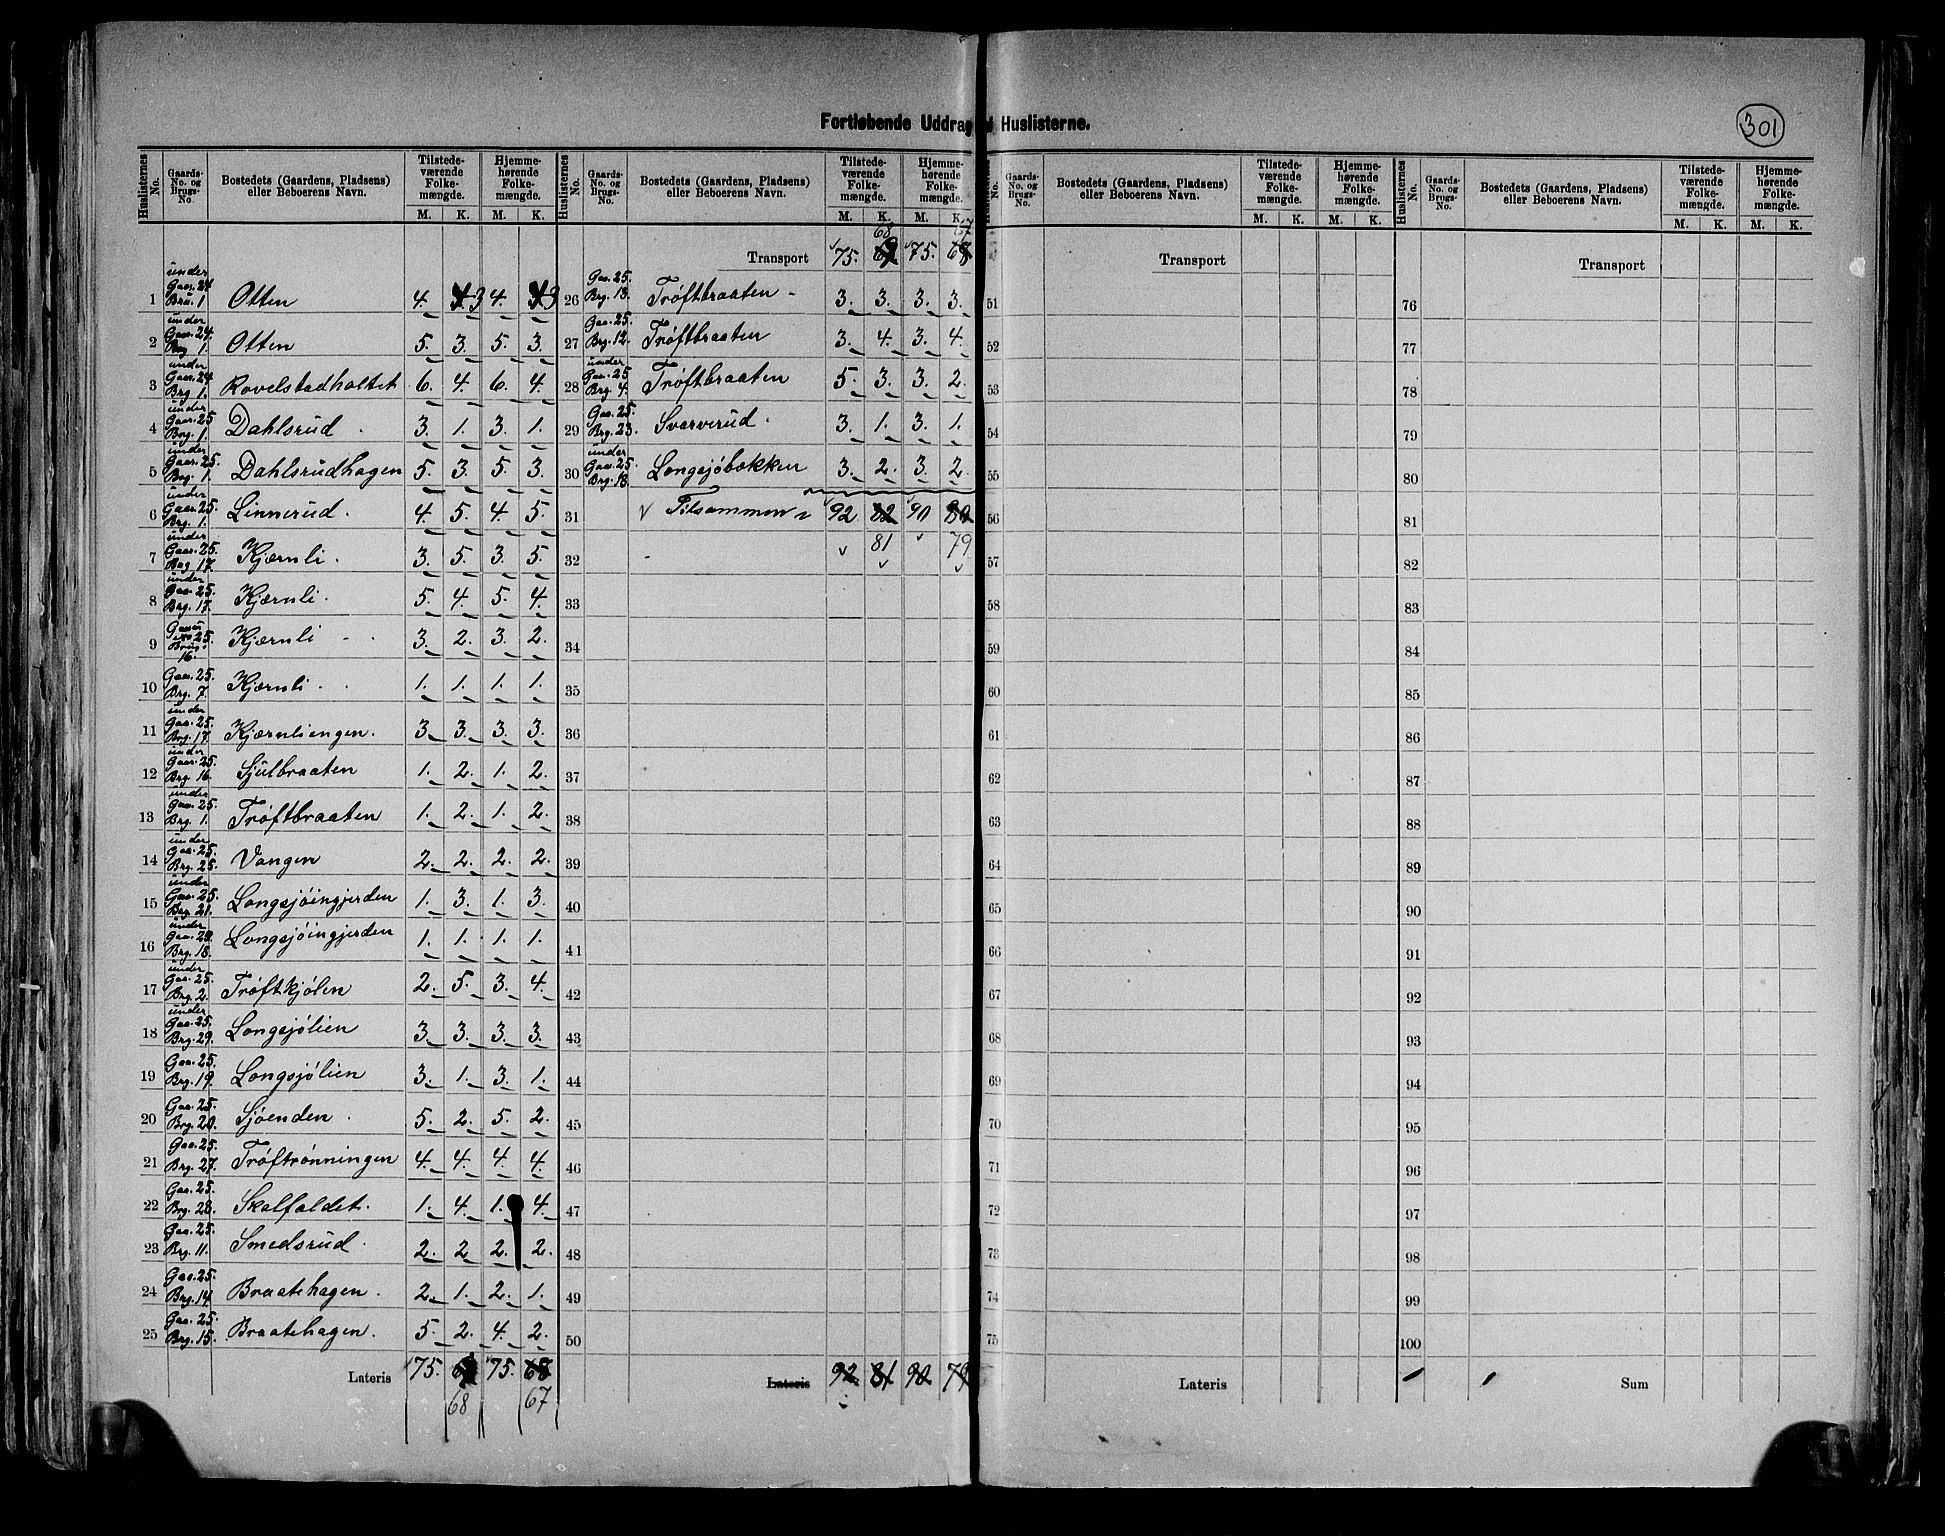 Fortløbende Uddrag af Huslisterne.
301
Huslisternes No. | Gaards-No. og Brugs-No. | Bostedets (Gaardens, Pladsens) eller Beboerens Navn. | Tilstedeværende Folkemængde. M. K. | Hjemmehørende Folkemængde. M. K.
1 under Gaar. 24 Bru. 1 Otten 4. 3 4. 3
2 under Gaar. 24. Brg 1. Otten 5. 3. 5. 3.
3 under Gaar. 24 Brg 1. Rovelstadholtet 6. 4. 6. 4.
4 under Gaar. 25 Brg. 1. Dahlsrud. 3. 1. 3. 1.
5 under Gaar. 25. Brg. 1. Dahlsrudhagen 5. 3. 5. 3.
6 under Gaar. 25. Brg. 1. Linnerud. 4. 5. 4. 5.
7 under Gaar. 25. Brg. 17. Kjærnli. 3. 5. 3. 5.
8 under Gaa. 25. Brg. 17. Kjærnli. 5. 4. 5. 4.
9 25. Brug. 16. Kjærnli 3. 2. 3. 2.
10 Gaa. 25. Brg. 7. Kjærnli. 1. 1. 1. 1.
11 under Gaa. 25. Brg. 17. Kjærnliengen. 3. 3. 3. 3.
12 under Gaar. 25. Brg. 16. Sjulbraaten 1. 2. 1. 2.
13 under Gaa. 25. Brg. 1. Trøftbraaten 1. 2. 1. 2.
14 under Gaa. 25. Brg. 25. Vangen 2. 2. 2. 2.
15 under Gaa. 25. Brg. 21. Longsjøingjerden 1. 3. 1. 3.
16 under Gaa. 25. Brg. 18. Longsjøingjerden 1. 1. 1. 1.
17 under Gaa. 25. Brg. 2. Trøftkjølen 2. 5. 3. 4.
18 under Gaa. 25. Brg. 29. Longsjølien 3. 3. 3. 3.
19 Gaa. 25. Brg. 19. Longsjølien 3. 1. 3. 1.
20 Gaa. 25. Brg. 20. Sjøenden. 5. 2. 5. 2.
21 Gaa. 25. Brg. 27. Trøftrønningen 4. 4. 4. 4.
22 Gaa. 25. Brg. 28. Skalfaldet. 1. 4. 1. 4.
23 Gaa. 25. Brg. 11. Smedsrud. 2. 2 2. 2.
24 Gaa. 25. Brg. 14. Braatehagen. 2. 1. 2. 1.
25 Gaa. 25. Brg. 15. Braatehagen. 5. 2. 4. 2.
Lateris 75. 75. 68
68 67
Huslisternes No. | Gaards-No. og Brugs-No. | Bostedets (Gaardens, Pladsens) eller Beboerens Navn. | Tilstedeværende Folkemængde. M. K. | Hjemmehørende Folkemængde. M. K.
68 67
Transport 75. 69 75. 68
26 Gaa. 25. Brg. 13. Trøftbraaten 3. 3. 3. 3.
27 Gaa. 25. Brg. 12. Trøftbraaten 3. 4. 3. 4.
28 under Gaa. 25 Brg. 4. Trøftbraaten 5. 3. 3. 2.
29 Gaa. 25. Brg. 23. Svarverud. 3. 1. 3. 1.
30 under Gaa. 25. Brg. 18. Longsjøbakken 3. 2. 3. 2.
31 Tilsammen 92 82 90 80
32 81 79
33
34
35
36
37
38
39
40
41
42
43
44
45
46
47
48
49
50
Lateris 92. 81 90 79
Huslisternes No. | Gaards-No. og Brugs-No. | Bostedets (Gaardens, Pladsens) eller Beboerens Navn. | Tilstedeværende Folkemængde. M. K. | Hjemmehørende Folkemængde. M. K.
Transport
51
52
53
54
55
56
57
58
59
60
61
62
63
64
65
66
67
68
69
70
71
72
73
74
75
Lateris
Huslisternes No. | Gaards-No. og Brugs-No. | Bostedets (Gaardens, Pladsens) eller Beboerens Navn. | Tilstedeværende Folkemængde. M. K. | Hjemmehørende Folkemængde. M. K.
Transport
76
77
78
79
80
81
82
83
84
85
86
87
88
89
90
91
92
93
94
95
96
97
98
99
100
Sum